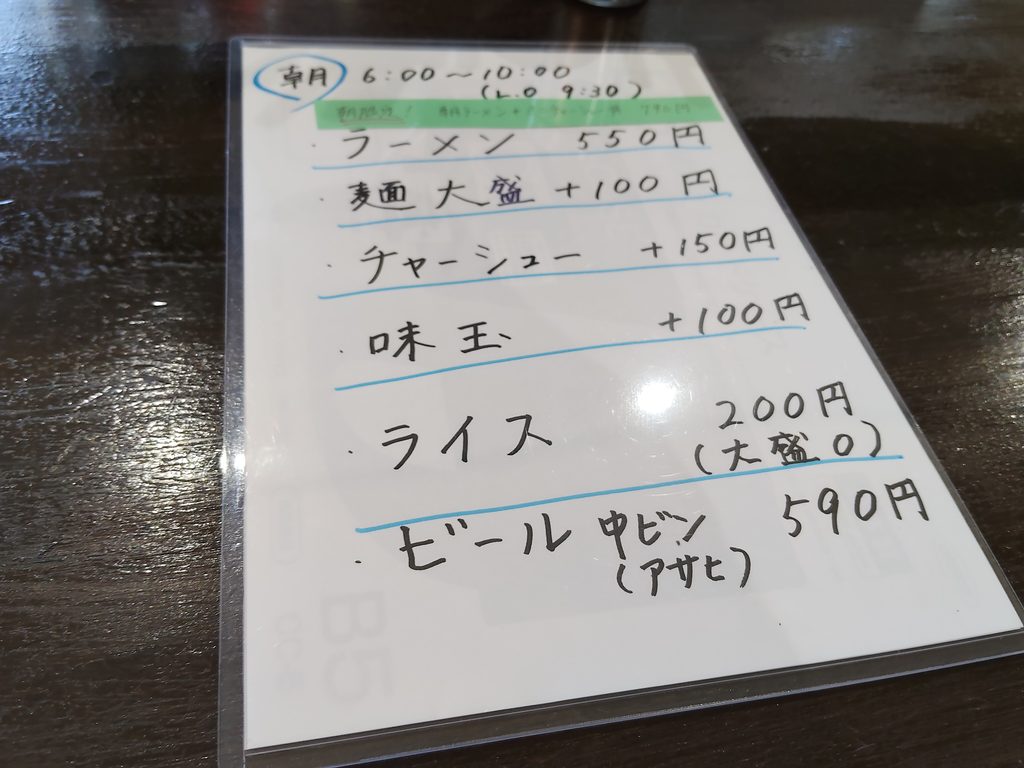 朝 6:00～10:00
(L.O 9:30)
・ラーメン 550円
・麺 大盛 +100円
・チャーシュー +150円
・味玉 +100円
・ライス 200円
(大盛 0)
・ビール 中ビン 590円
(アサヒ)
B5